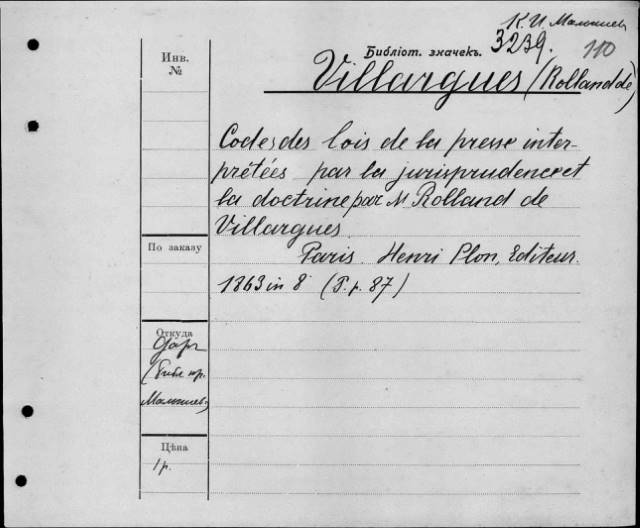 К. И. Малышев
Библіот. значекъ. 3239. 110
Инв.
№
Villargues (Rolland de)
Codes des lois de la presse inter-
prétées par la jurisprudence et
la doctrine par M Rolland de
Villargues.
По заказу
Paris. Henri Plon, Editeur.
1863 in 8 (P. p. 87)
Откуда
Даръ
Малышев)
Цѣна
1 р.